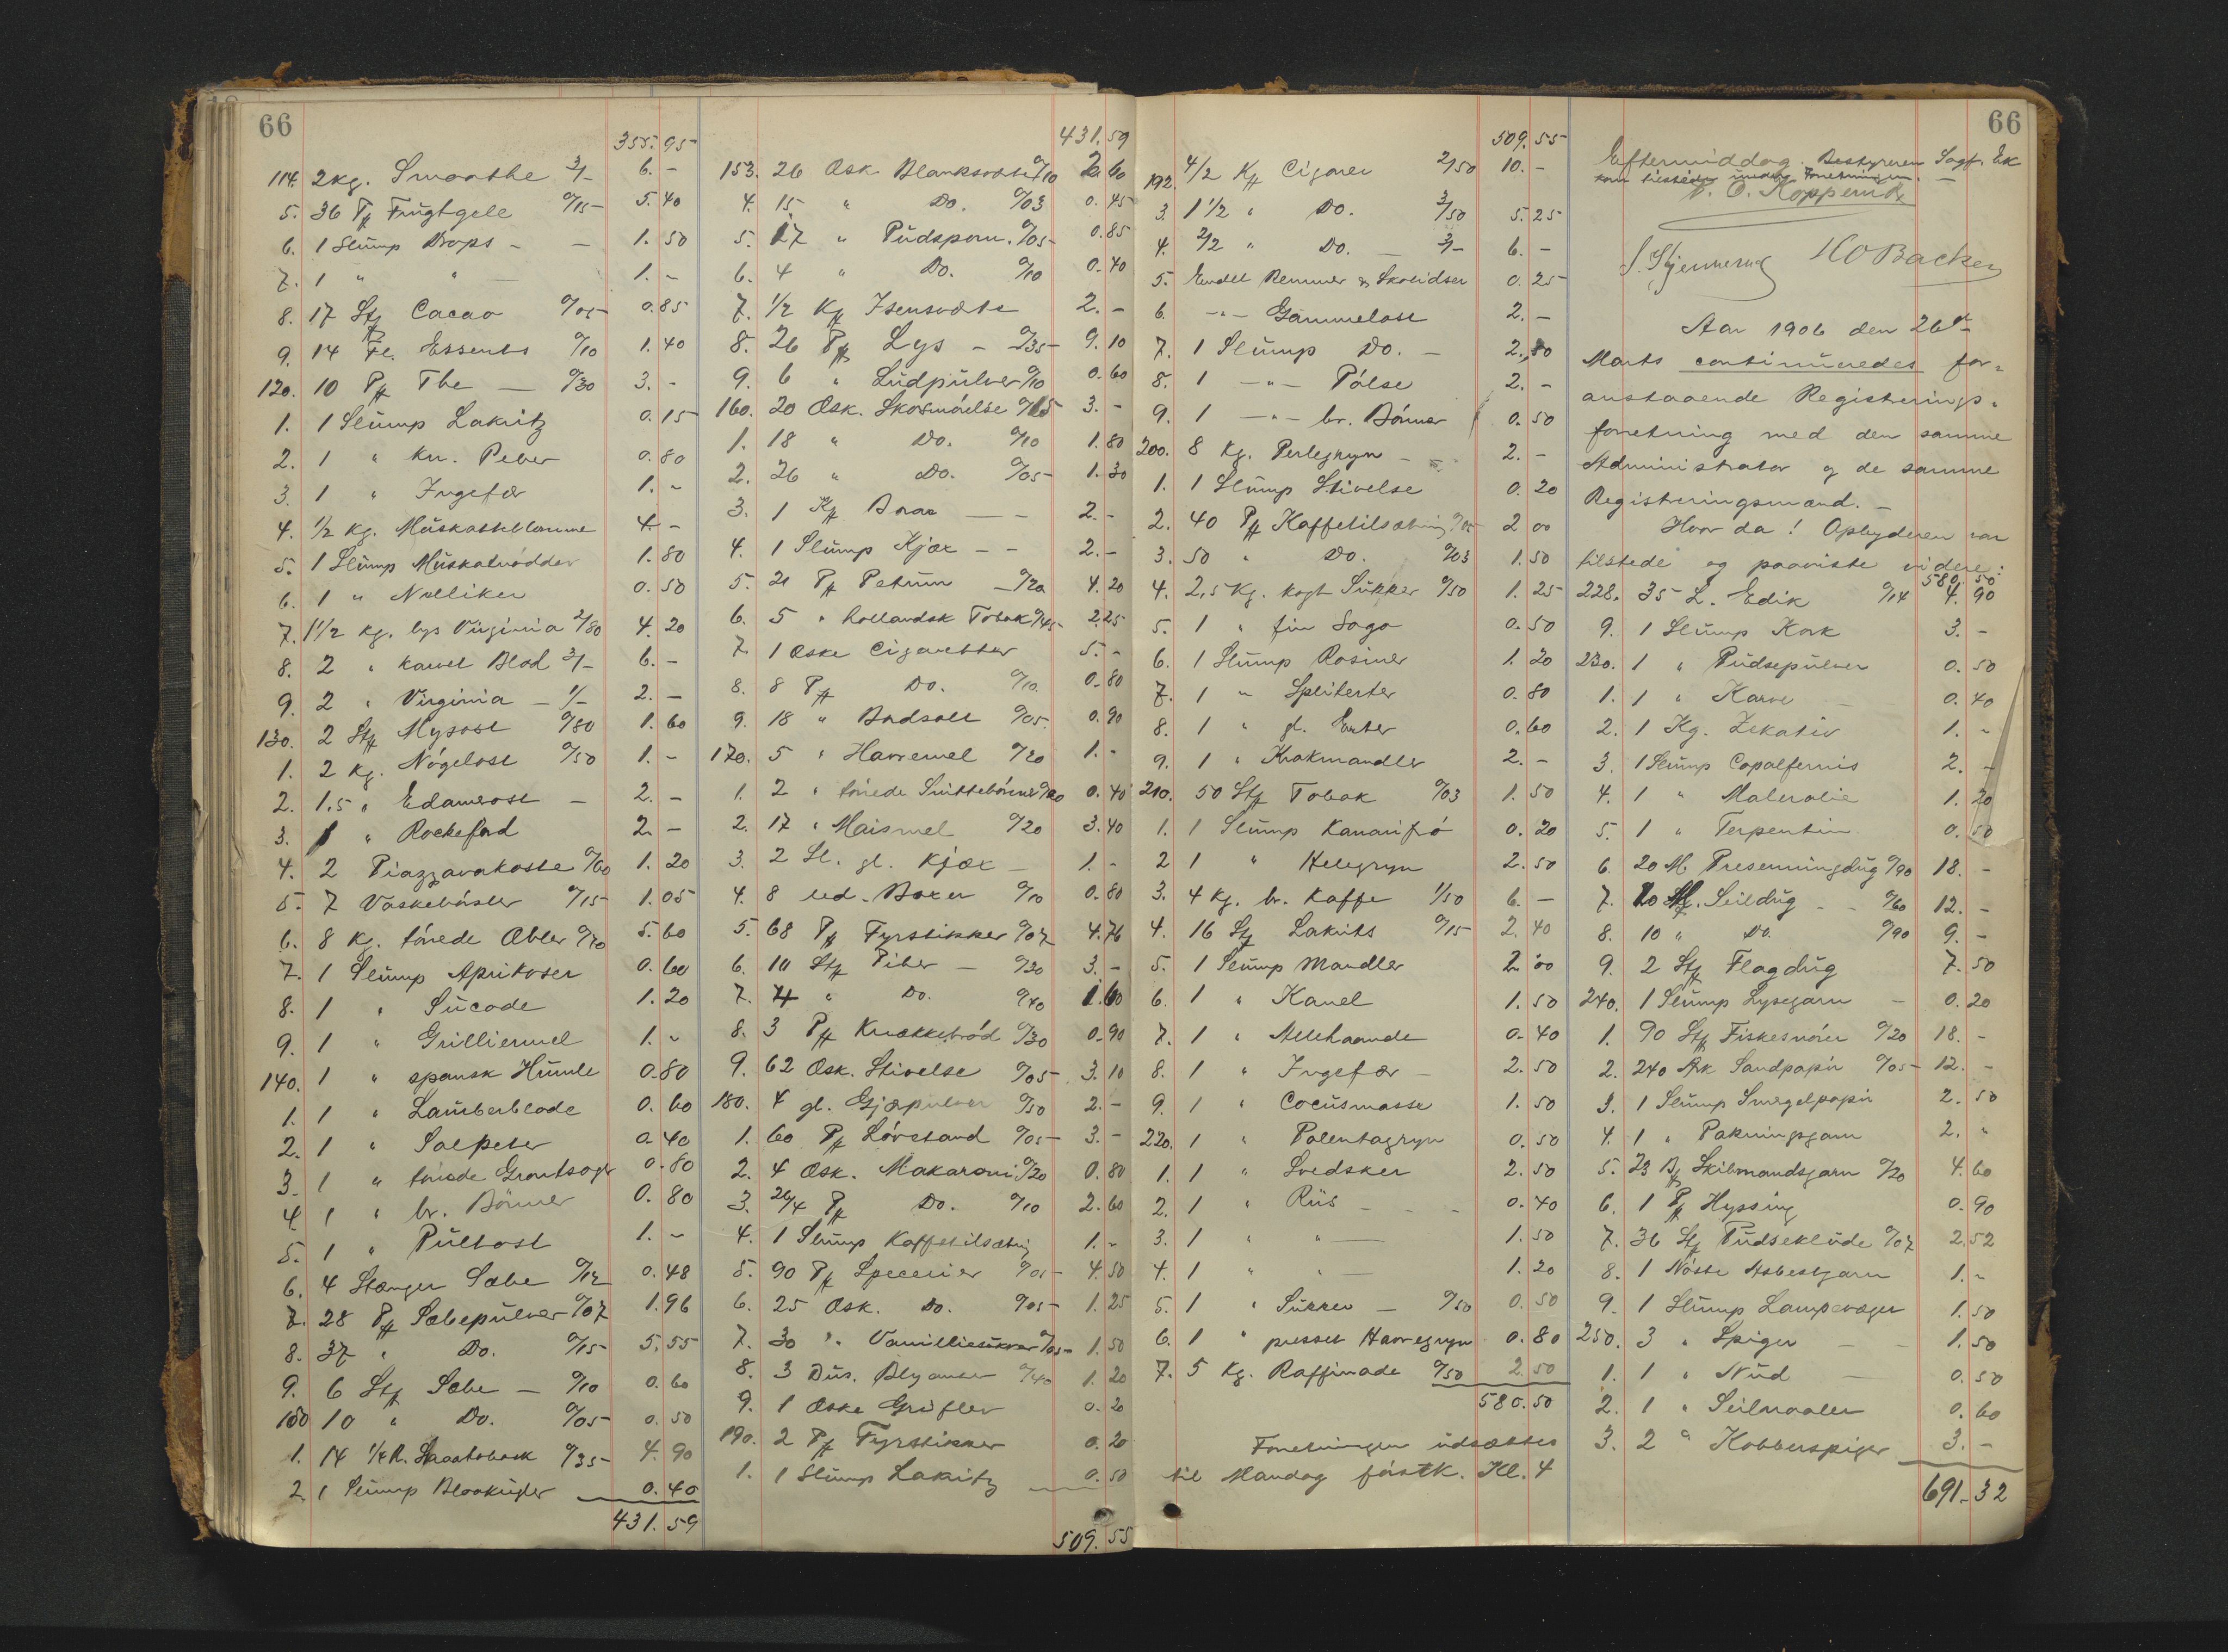 66
355.95
114. 2 kg. Smaathe 3/- 6. -
5. 36 Pk Frugtgele 0/15 5.40
6. 1 Slump Drops - - 1.50
7. 1 " " - 1. -
8. 17 Stk Cacao 0/05 0.85
9. 14 Fl. Essents 0/10 1.40
120. 10 Pk The - 0/30 3. -
1. 1 Slump Lakritz 0.15
2. 1 " kn. Peber 0.80
3. 1 " Ingefær 1. -
4. 1/2 kg. Muskatblomme 4 -
5. 1 Slump Muskatnødder 1.80
6. 1 " Nelliker 0.50
7. 1 1/2 kg. lys Virginia 2/80 4.20
8. 2 " karvet Blad 3/- 6. -
9. 2 " Virginia - 1/- 2. -
130. 2 Stk Mysost 0/80 1.60
1. 2 kg. Nøgelost 0/50 1. -
2. 1.5 " Edamerost - 2. -
3. 1 " Rockeford 2 -
4. 2 Piazzavakoste 0/60 1.20
5. 7 Vaskebørster 0/15 1.05
6. 8 kg. tørede Æbler 0/70 5.60
7. 1 Slump Aprikoser 0.60
8. 1 " Sucade 1.20
9. 1 " Grilliermel 1. -
140. 1 " spansk Humle 0.80
1. 1 " Laurberblade 0.60
2. 1 " Salpeter 0.40
3. 1 " tørede Grøntsager 0.80
4. 1 " br. Bønner 0.80
5. 1 " Pultost 1. -
6. 4 Stænger Sæbe 0/12 0.48
7. 28 Pk Sæbepulver 0/07 1.96
8. 37 " Do. 0/15 5.55
9. 6 Stk Sæbe - 0/10 0.60
150 10 " Do. 0/05 0.50
1. 14 1/4 R. Skraatobak 0/35 4.90
2. 1 Slump Blaakugler 0.40
431.59
431.59
153. 26 Æsk Blanksværte 0/10 2.60
4. 15 " Do. 0/03 0.45
5. 17 " Pudspom. 0/05 0.85
6. 4 " Do. 0/10 0.40
7. 1/2 Kg Isensværte 2. -
8. 26 Pk Lys - 0/35 9.10
9. 6 " Ludpulver 0/10 0.60
160. 20 Æsk. Skosmørelse 0/15 3. -
1. 18 " Do. 0/10 1.80
2. 26 " Do. 0/05 1.30
3. 1 Kg Borax - - 2. -
4. 1 Slump Kjæx - - 2. -
5. 21 Pk Petum - 0/20 4.20
6. 5 " hollandsk Tobak 0/45 2.25
7. 1 Æske Cigaretter 5. -
8. 8 Pk Do. 0/10 0.80
9. 18 " Badsalt 0/05 0.90
170. 5 " Havremel 0/20 1. -
1. 2 " tørede Snittebønner 0/20 0.40
2. 17 " Maismel 0/20 3.40
3. 2 Sl. gl. Kjæx - 1. -
4. 8 led. Boxer 0/10 0.80
5. 68 Pk Fyrstikker 0/07 4.76
6. 10 Stk Piber - 0/30 3. -
7. 4 " Do. 0/40 1.60
8. 3 Pk Knækkebrød 0/30 0.90
9. 62 Æsk. Stivelse 0/05 3.10
180. 4 gl. Gjærpulver 0/50 2. -
1. 60 Pk Løvstand 0/05 3. -
2. 4 Æsk. Makaroni 0/20 0.80
3. 26/4 Pk Do. 0/10 2.60
4. 1 Slump Kaffetilsætning 1. -
5. 90 Pk Specerier 0/05 4.50
6. 25 Æsk. Do. 0/05 1.25
7. 30 " Vanilliesukker 0/05 1.50
8. 3 Dus. Blyanter 0/40 1.20
9. 1 Æske Grifler 0.20
190. 2 Pk Fyrstikker 0.20
1. 1 Slump Lakritz 0.50
509.55
509.55
192. 4/2 Kg Cigarer 2/50 10. -
3. 1 1/2 " Do. 3/50 5.25
4. 2/2 " Do. - 3/- 6. -
5. Endel Remmer & Skolidser 0.25
6. -"- Gammelost 2. -
7. 1 Slump Do. - 2.50
8. 1 -"- Pølse 2. -
9. 1 -"- br. Bønner 0.50
200. 8 Kg. Perlegryn - - 2. -
1. 1 Slump Stivelse 0.20
2. 40 Pk Kaffetilsætning 0/05 2 00
3. 50 " Do. 0/03 1.50
4. 2,5 Kg. kogt Sukker 0/50 1.25
5. 1 " fin Sago 0.50
6. 1 Slump Rosiner 1.20
7. 1 " Spliterter 0.80
8. 1 " gl. Erter 0.60
9. 1 " Krakmandler 2. -
210. 50 Stk Tobak 0/03 1.50
1. 1 Slump Kanarifrø 0.20
2 1 " Helegryn 2.50
3. 4 Kg. br. Kaffe 1/50 6. -
4. 16 Stk Lakrits 0/15 2.40
5. 1 Slump Mandler 2.00
6. 1 " Kanel 1.50
7. 1 " Allehaande 0.40
8. 1 " Ingefær - 2.50
9. 1 " Cocusmasse 1.50
220. 1 " Polentagryn 0.50
1. 1 " Svedsker 2.50
2. 1 " Riis - - - 0.40
3. 1 " " - 1.50
4. 1 " " - 1.20
5. 1 " Sukker - 0/50 0.50
6. 1 " presset Havregryn 0.80
7. 5 Kg. Raffinade 0/50 2.50
580.50
Forretningen udsættes
til Mandag førstk. Kl. 4
66
Eftermiddag. Bestyreren Sagf. Ek
kom tilstede under Forretningen. -
O. Koppernæs
S. Stjennerud H O Backer
Aar 1906 den 26de
Marts continueredes for=
anstaaende Registrerings=
forretning med den samme
Administrator og de samme
Registreringsmænd. -
Hvor da! Opbyderen var
tilstede og paaviste videre:
580.50
228. 35 L. Edik 0/14 4.90
9. 1 Slump Kork 3. -
230. 1 " Pudsepulver 0.50
1. 1 " Karve 0.40
2. 1 Kg. Zekativ 1. -
3. 1 Slump Copalfernis 2. -
4. 1 " Malerolie 1.20
5. 1 " Terpentin 0.50
6. 20 M Presenningdug 0/90 18. -
7. 20 M. Seildug - - 0/60 12. -
8. 10 " Do. 0/90 9. -
9. 2 Stk Flagdug 7.50
240. 1 Slump Lysegarn - 0.20
1. 90 Stk Fiskesnører 0/20 18. -
2. 240 Ark Sandpapir 0/05 12. -
3. 1 Slump Smergelpapir 2.50
4. 1 " Pakningsgarn 2. "
5. 23 B Skibmandsgarn 0/20 4.60
6. 1 Pk Hyssing 0.90
7. 36 Stk Pudseklude 0/07 2.52
8. 1 Nøste Asbestgarn 1. -
9. 1 Slump Lampevæger 1.50
250. 3 " Spiger - - 1.50
1. 1 " Nud - 0.50
2. 1 " Seilnaaler 0.60
3. 2 " Kobberspiger 3. -
691.32